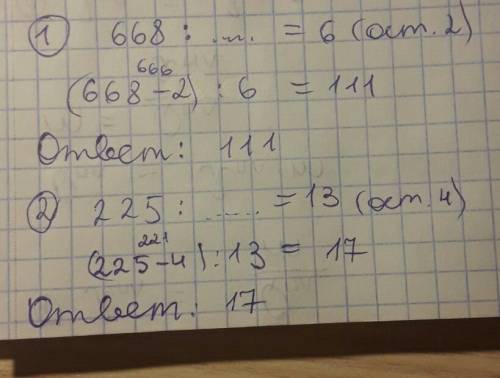 ① 668 : ..... = 6 (ост. 2)
666
(668 - 2) : 6 = 111
Ответ: 111
② 225 : ...... = 13 (ост. 4)
221
(225 - 4) : 13 = 17
Ответ: 17